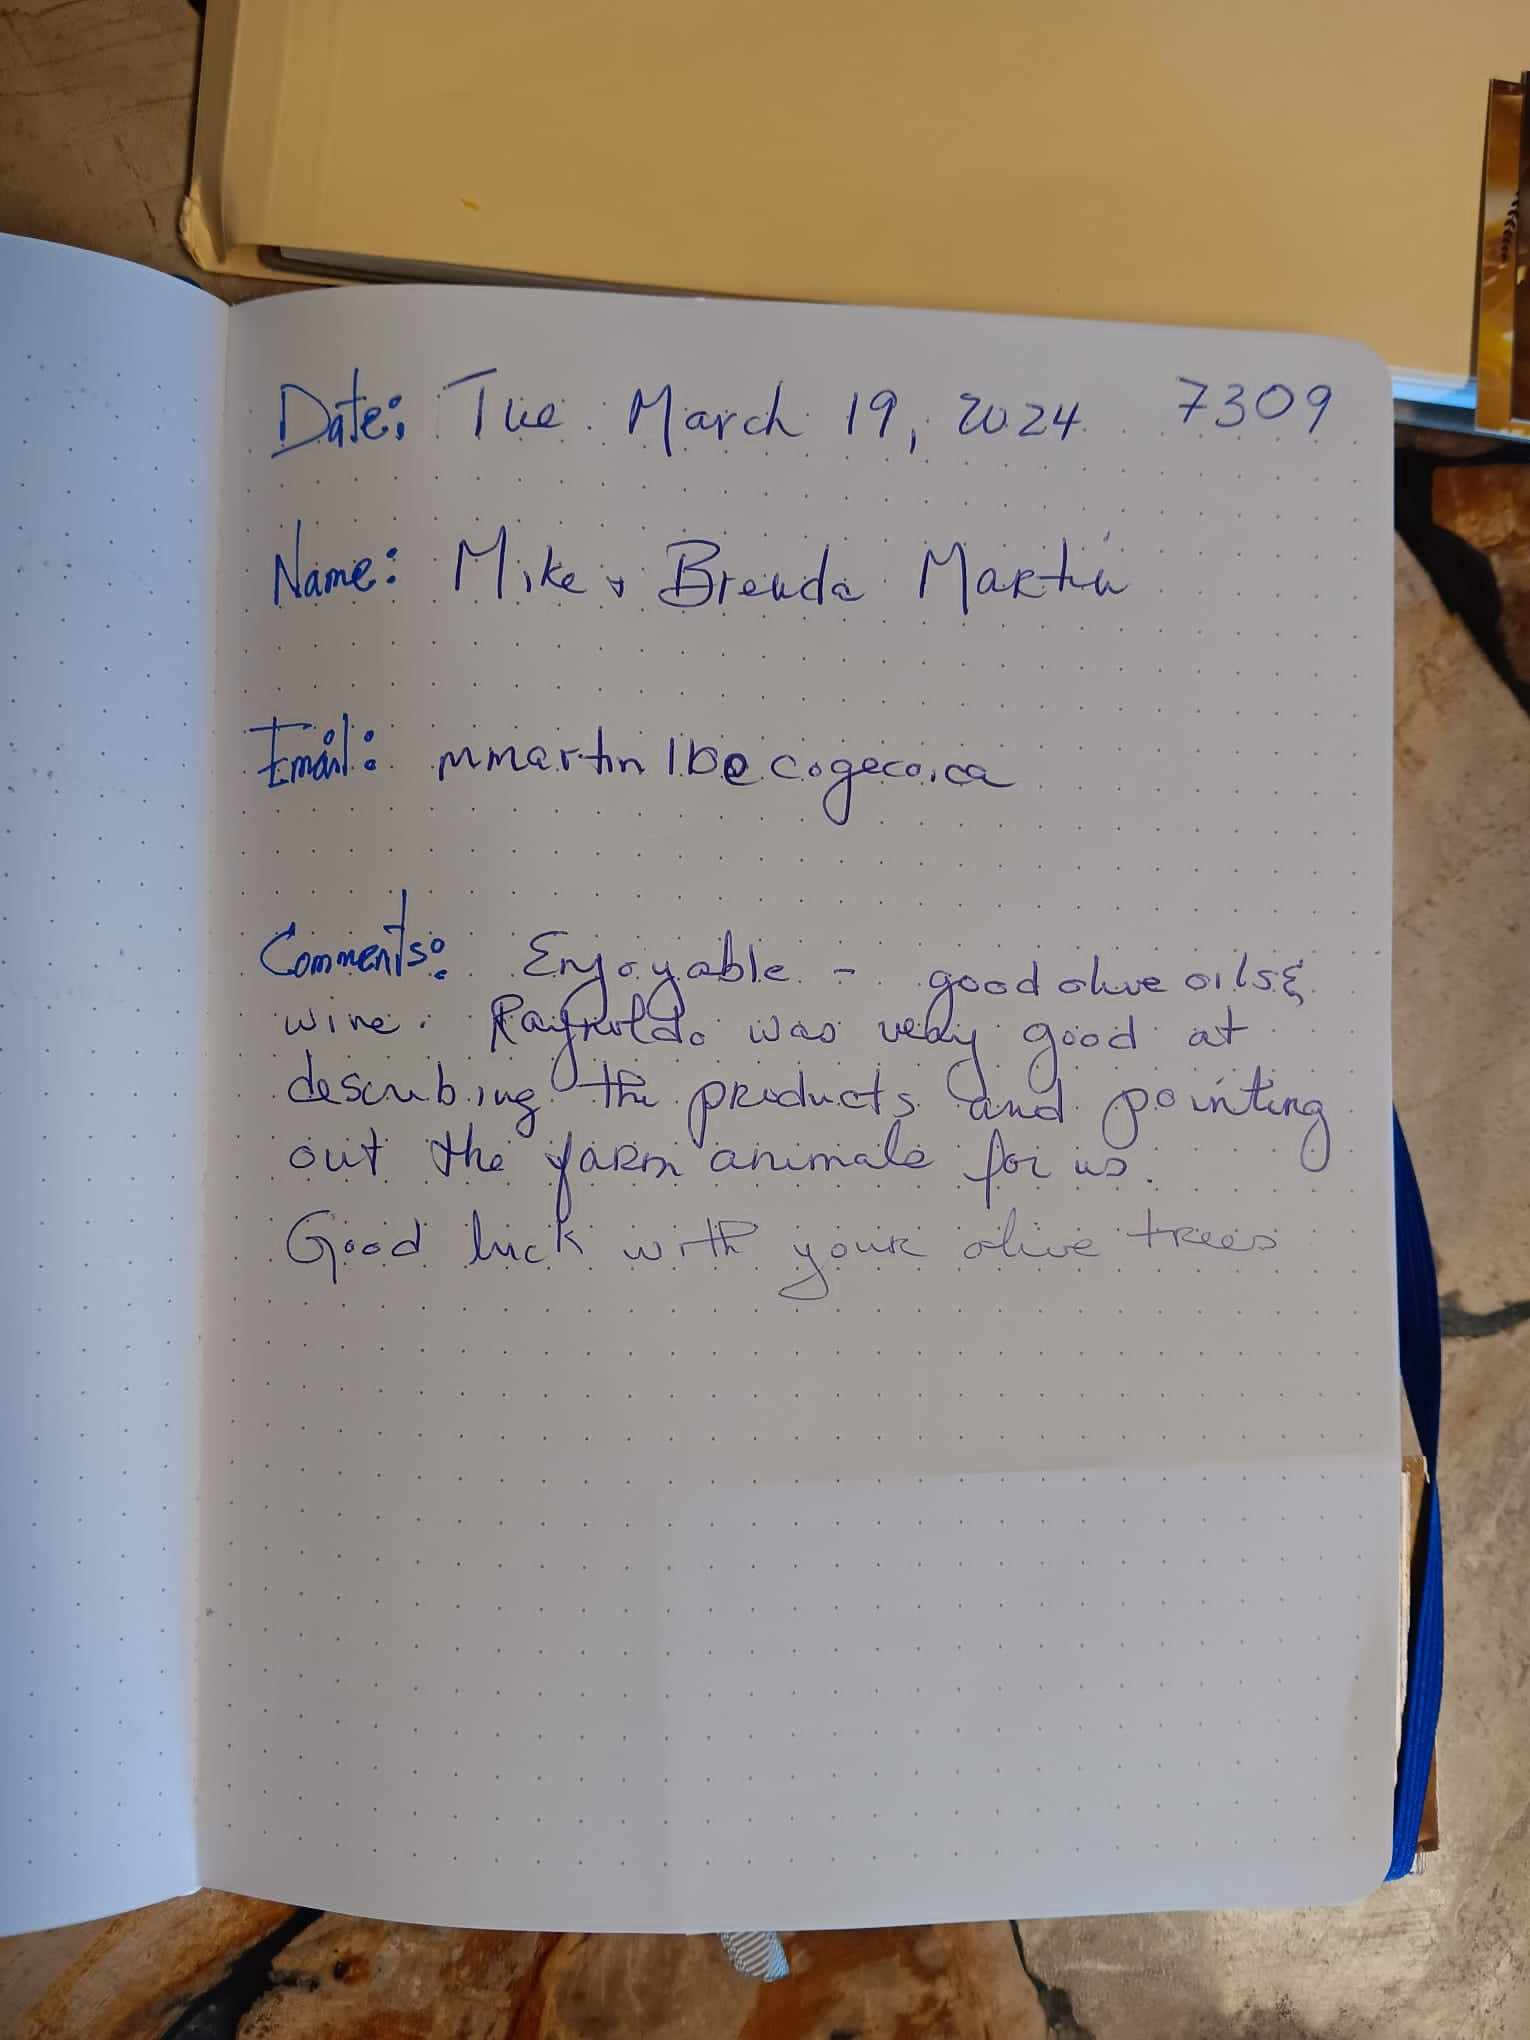 Date: Tue March 19, 2024 7309
Name: Mike + Brenda Martin
Email: mmartin1b@cogeco.ca
Comments: Enjoyable - good olive oils &
wine. Raynoldo was very good at
describing the products and pointing
out the farm animals for us.
Good luck with your olive trees